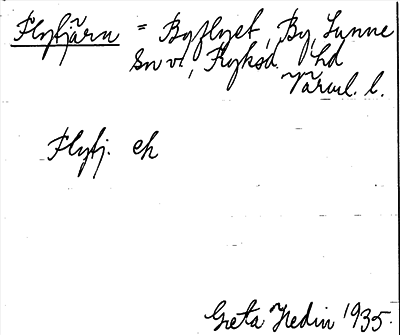 Flytjärn = Byflyet, By, Sunne
sn v., Fryksd. hd
Värml. l.
Flytj. ek
Greta Hedin 1935.